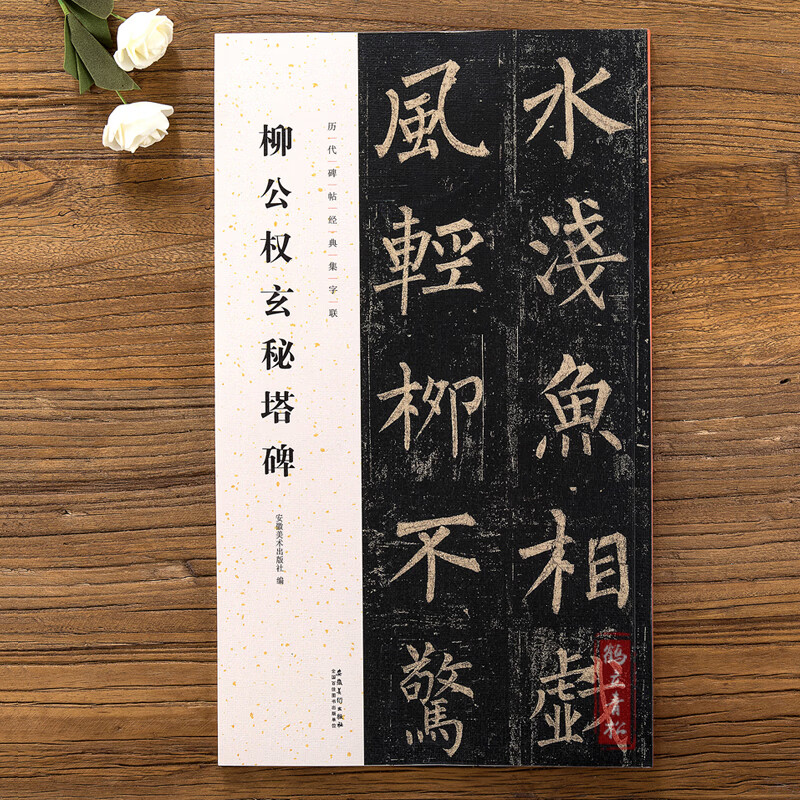 水淺魚相戲
風輕柳不驚
历代碑帖经典集字联
柳公权玄秘塔碑
安徽美术出版社 编
安徽美術出版社
全国百佳图书出版单位
鹤立青松